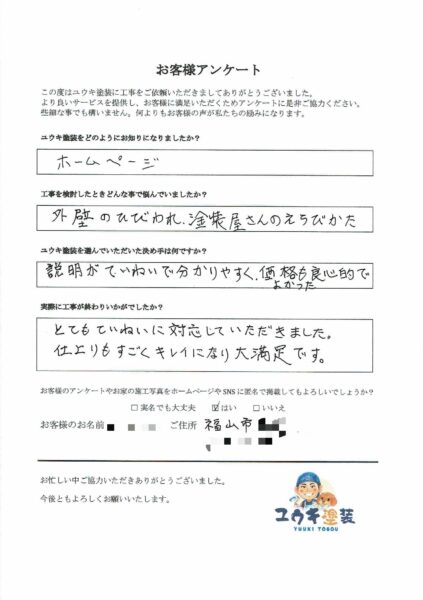 お客様アンケート
この度はユウキ塗装に工事をご依頼いただきましてありがとうございました。
より良いサービスを提供し、お客様に満足いただくためアンケートに是非ご協力ください。
些細な事でも構いません。何よりもお客様の声が私たちの励みになります。
ユウキ塗装をどのようにお知りになりましたか？
ホームページ
工事を検討したときどんな事で悩んでいましたか？
外壁のひびわれ、塗装屋さんのえらびかた
ユウキ塗装を選んでいただいた決め手は何ですか？
説明がていねいで分かりやすく、価格も良心的で
よかった
実際に工事が終わりいかがでしたか？
とてもていねいに対応していただきました。
仕上りもすごくキレイになり大満足です。
お客様のアンケートやお家の施工写真をホームページやSNSに匿名で掲載してもよろしいでしょうか？
□実名でも大丈夫 ☑はい □いいえ
お客様のお名前 ご住所 福山市
お忙しい中ご協力いただきありがとうございました。
今後ともよろしくお願いいたします。
ユウキ塗装
YUUKI TOSOU